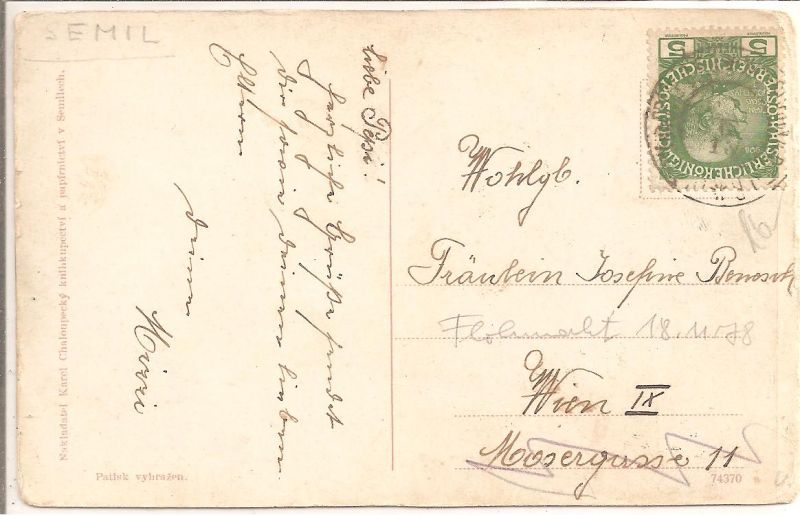 SEMIL
Liebe Pepi!
herzliche Grüße sendet
dir sowie deinen lieben
Eltern
deine
Mizzi
Nakladatel Karel Chaloupecký knihkupectví a papírnictví v Semilech.
Patisk vyhražen.
5 5
KAISERLICHE KÖNIGLICHE
Wohlgb.
Fräulein Josefine
Flohmarkt 18.11.78
Wien IX
Mosergasse 11
74370